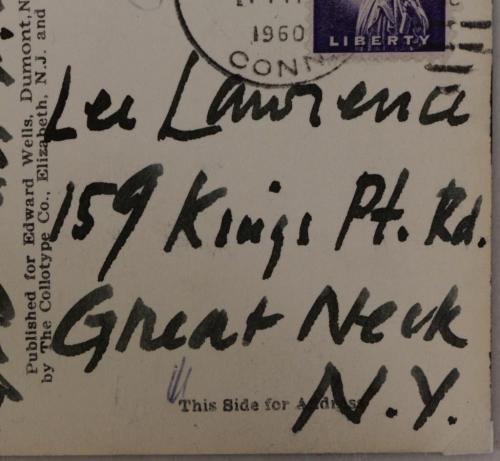 1960
CONN
LIBERTY
Lee Lawrence
159 Kings Pt. Rd.
Great Neck
N.Y.
Published for Edward Wells, Dumont, N
by The Collotype Co., Elizabeth, N.J. and
This Side for Address